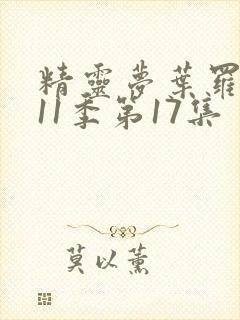 精靈夢葉羅
11季第17集
莫以薰